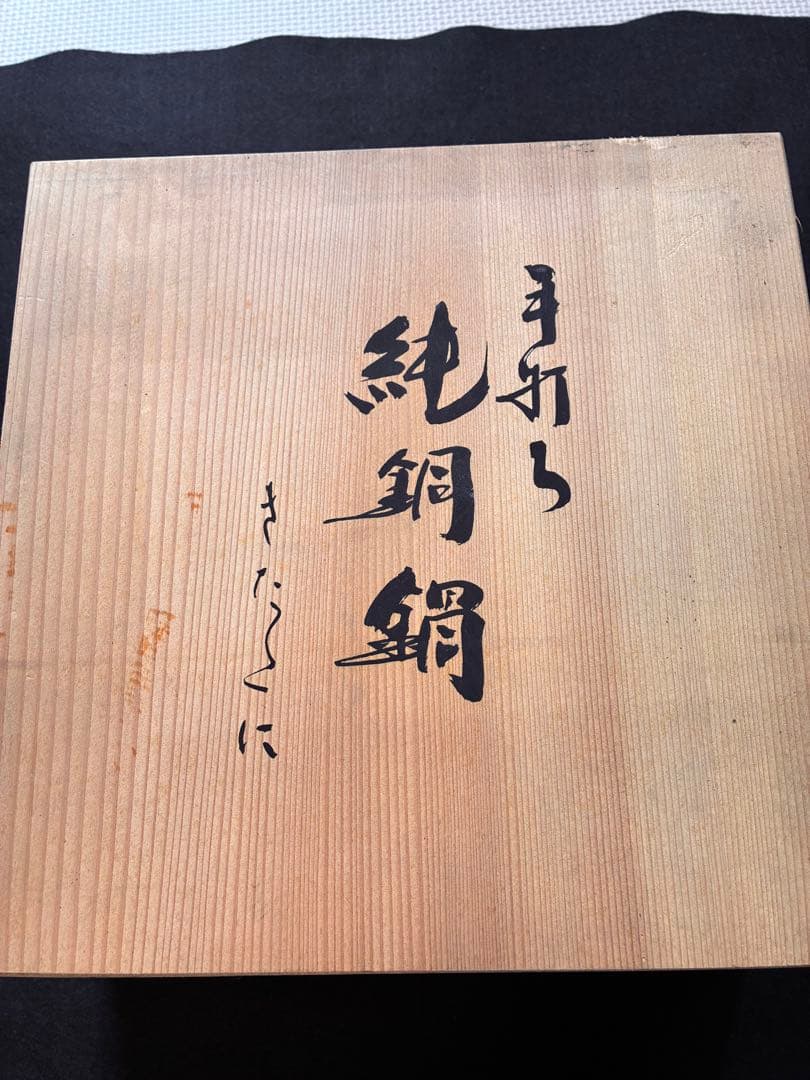 手打ち
純銅鍋
きたくに